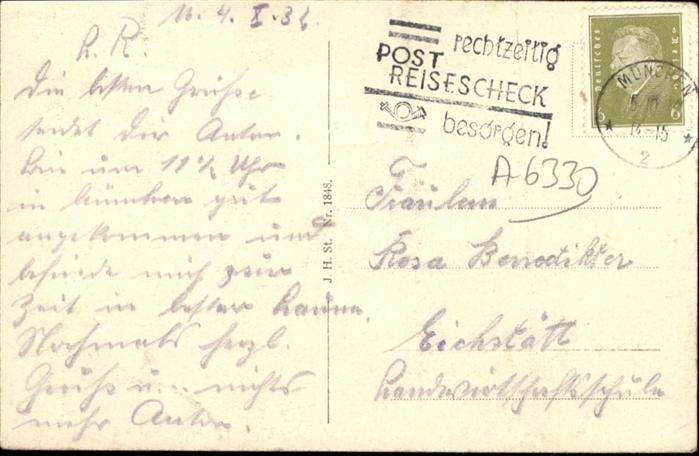 M. 4. X. 32
L. R.!
Die besten Grüße
sendet dir Anton.
Bin um 11½ Uhr
in München gut
angekommen und
befinde mich zur
Zeit in bester Laune.
Nochmals herzl.
Grüße u. nichts
mehr Anton.
J. H. St. Nr. 1848.
rechtzeitig
POST
REISESCHECK
besorgen!
Deutsches Reich
6 6
MÜNCHEN
14-15
2
A 6330
Fräulein
Rosa Benedikter
Eichstätt
Landwirtschaftsschule